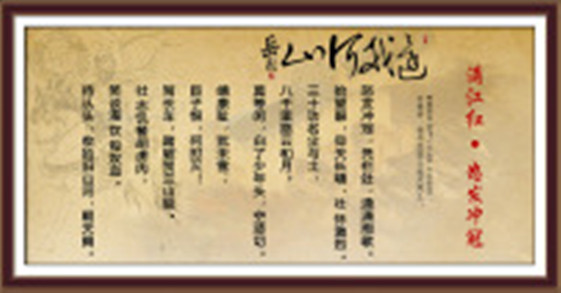 满江红·怒发冲冠
还我河山
岳飞
怒发冲冠,凭栏处、潇潇雨歇。
抬望眼,仰天长啸,壮怀激烈。
三十功名尘与土,
八千里路云和月。
莫等闲、白了少年头,空悲切。
靖康耻,犹未雪。
臣子恨,何时灭。
驾长车,踏破贺兰山缺。
壮志饥餐胡虏肉,
笑谈渴饮匈奴血。
待从头、收拾旧山河,朝天阙。